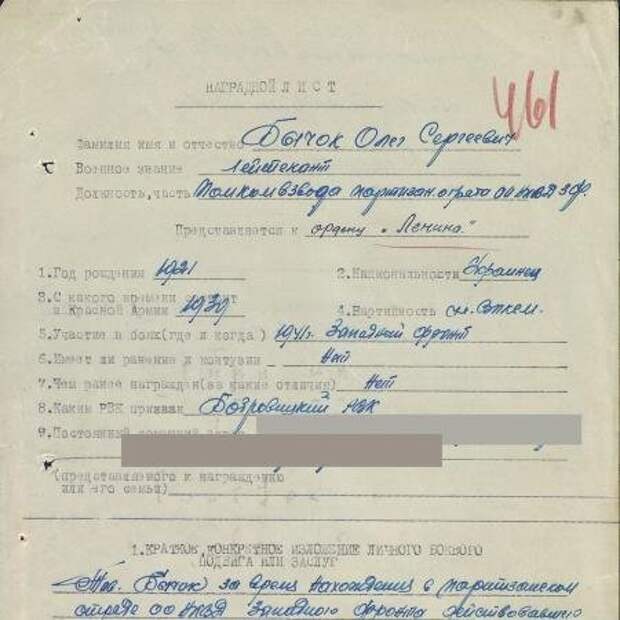 461
НАГРАДНОЙ ЛИСТ
Фамилия имя и отчество Бычок Олег Сергеевич
Военное звание Лейтенант
Должность, часть Помкомвзвода партизан. отряда ОО НКВД З.Ф.
Представляется к ордену „Ленина"
1.Год рождения 1921
2.Национальности Украинец
3.С какого времени
в Красной Армии 1939
4.Партийность
5.Участие в боях(где и когда) 1941г. Западный фронт
6.Имеет ли ранение и контузии Нет
7.Чем ранее награжден(за какие отличия) Нет
8.Каким РВК призван РВК
9.Постоянный
(представляемого к награждению
или его семьи)
1.КРАТКОЕ, КОНКРЕТНОЕ ИЗЛОЖЕНИЕ ЛИЧНОГО БОЕВОГО
ПОДВИГА ИЛИ ЗАСЛУГ
Тов. Бычок за время нахождения в партизанском
отряде ОО НКВД Западного Фронта действовавшего